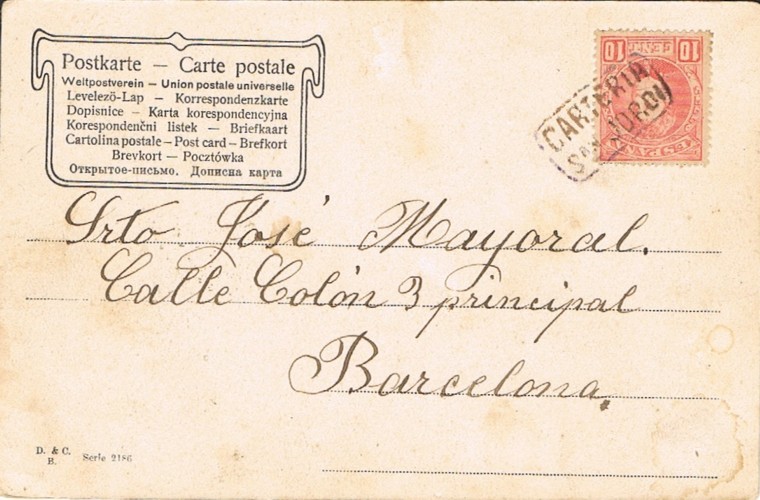 Postkarte — Carte postale
Weltpostverein — Union postale universelle
Levelező-Lap — Korrespondenzkarte
Dopisnice — Karta korespondencyjna
Korespondenční listek — Briefkaart
Cartolina postale — Post card — Brefkort
Brevkort — Pocztówka
Открытое-письмо. Дописна карта
10 CENT 10
ESPAÑA
CARTERIA
SAN JORDI
Srto José Mayoral.
Calle Colón 3 principal
Barcelona.
D. & C.
B.
Serie 2186